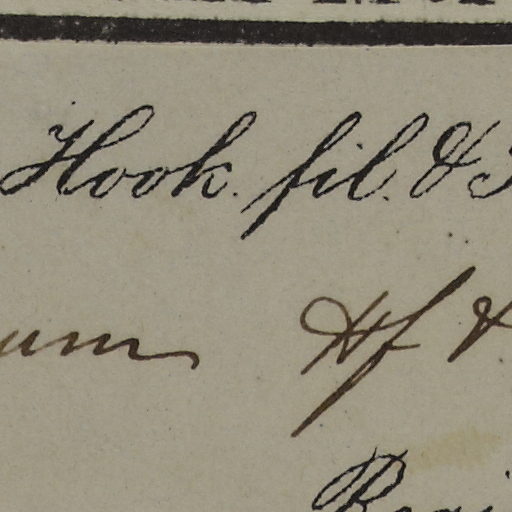 Hook. fil. &
um Hf &
Regi